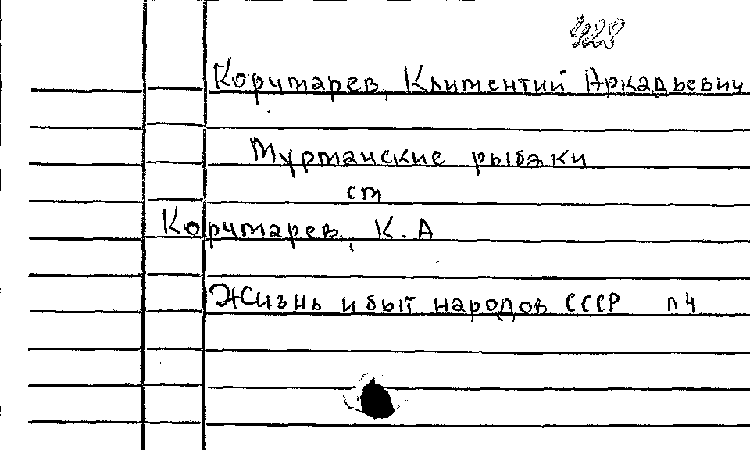 Корчмарев, Климентий Аркадьевич
Мурманские рыбаки
ст
Корчмарев, К. А
Жизнь и быт народов СССР п 4